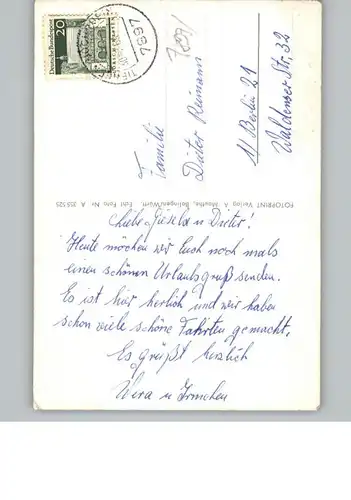 Deutsche Bundespost
20
7997
Familie
Dieter Reimann
1 Berlin 21
Waldenser Str. 32
FOTOPRINT Verlag A. Mauthe, Balingen/Württ. Echt Foto Nr. A
Liebe Gisela u Dieter!
Heute möchen wir Euch noch mals
einen schönen Urlaubsgruß senden.
Es ist hier herlich und wir haben
schon viele schöne Fahrten gemacht.
Es grüßt herzlich
Wera u Irmchen